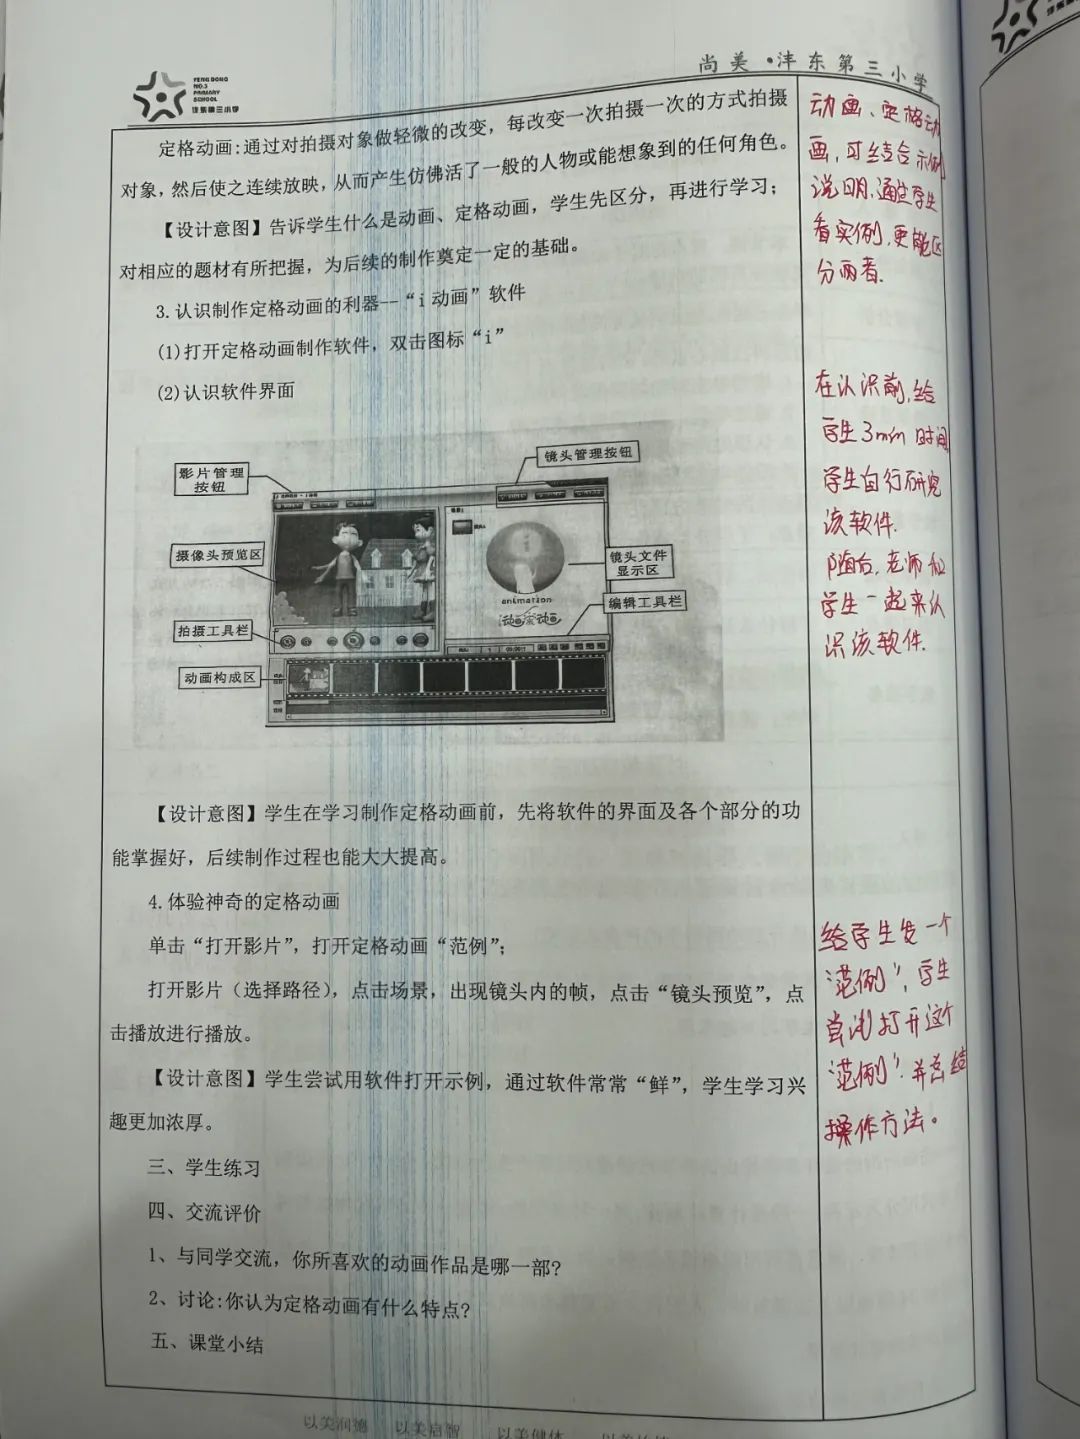 FENG DONG
NO.3
PRIMARY
SCHOOL
沣东第三小学
尚美·沣东第三小学
定格动画:通过对拍摄对象做轻微的改变，每改变一次拍摄一次的方式拍摄
对象，然后使之连续放映，从而产生仿佛活了一般的人物或能想象到的任何角色。
【设计意图】告诉学生什么是动画、定格动画，学生先区分，再进行学习；
对相应的题材有所把握，为后续的制作奠定一定的基础。
3.认识制作定格动画的利器--“i动画”软件
(1)打开定格动画制作软件，双击图标“i”
(2)认识软件界面
影片管理
按钮
镜头管理按钮
摄像头预览区
镜头文件
显示区
animation
编辑工具栏
拍摄工具栏
动画构成区
【设计意图】学生在学习制作定格动画前，先将软件的界面及各个部分的功
能掌握好，后续制作过程也能大大提高。
4.体验神奇的定格动画
单击“打开影片”，打开定格动画“范例”；
打开影片（选择路径），点击场景，出现镜头内的帧，点击“镜头预览”，点
击播放进行播放。
【设计意图】学生尝试用软件打开示例，通过软件常常“鲜”，学生学习兴
趣更加浓厚。
三、学生练习
四、交流评价
1、与同学交流，你所喜欢的动画作品是哪一部?
2、讨论:你认为定格动画有什么特点?
五、课堂小结
动画、定格动
画，可结合示例
说明，通过学生
看实例，更能区
分两者.
在认识前，给
学生3min时间
学生自行研究
该软件.
随后，老师和
学生一起来认
识该软件.
给学生发一个
“范例”，学生
尝试打开这个
“范例”.并总结
操作方法。
以美润德 以美启智 以美健体